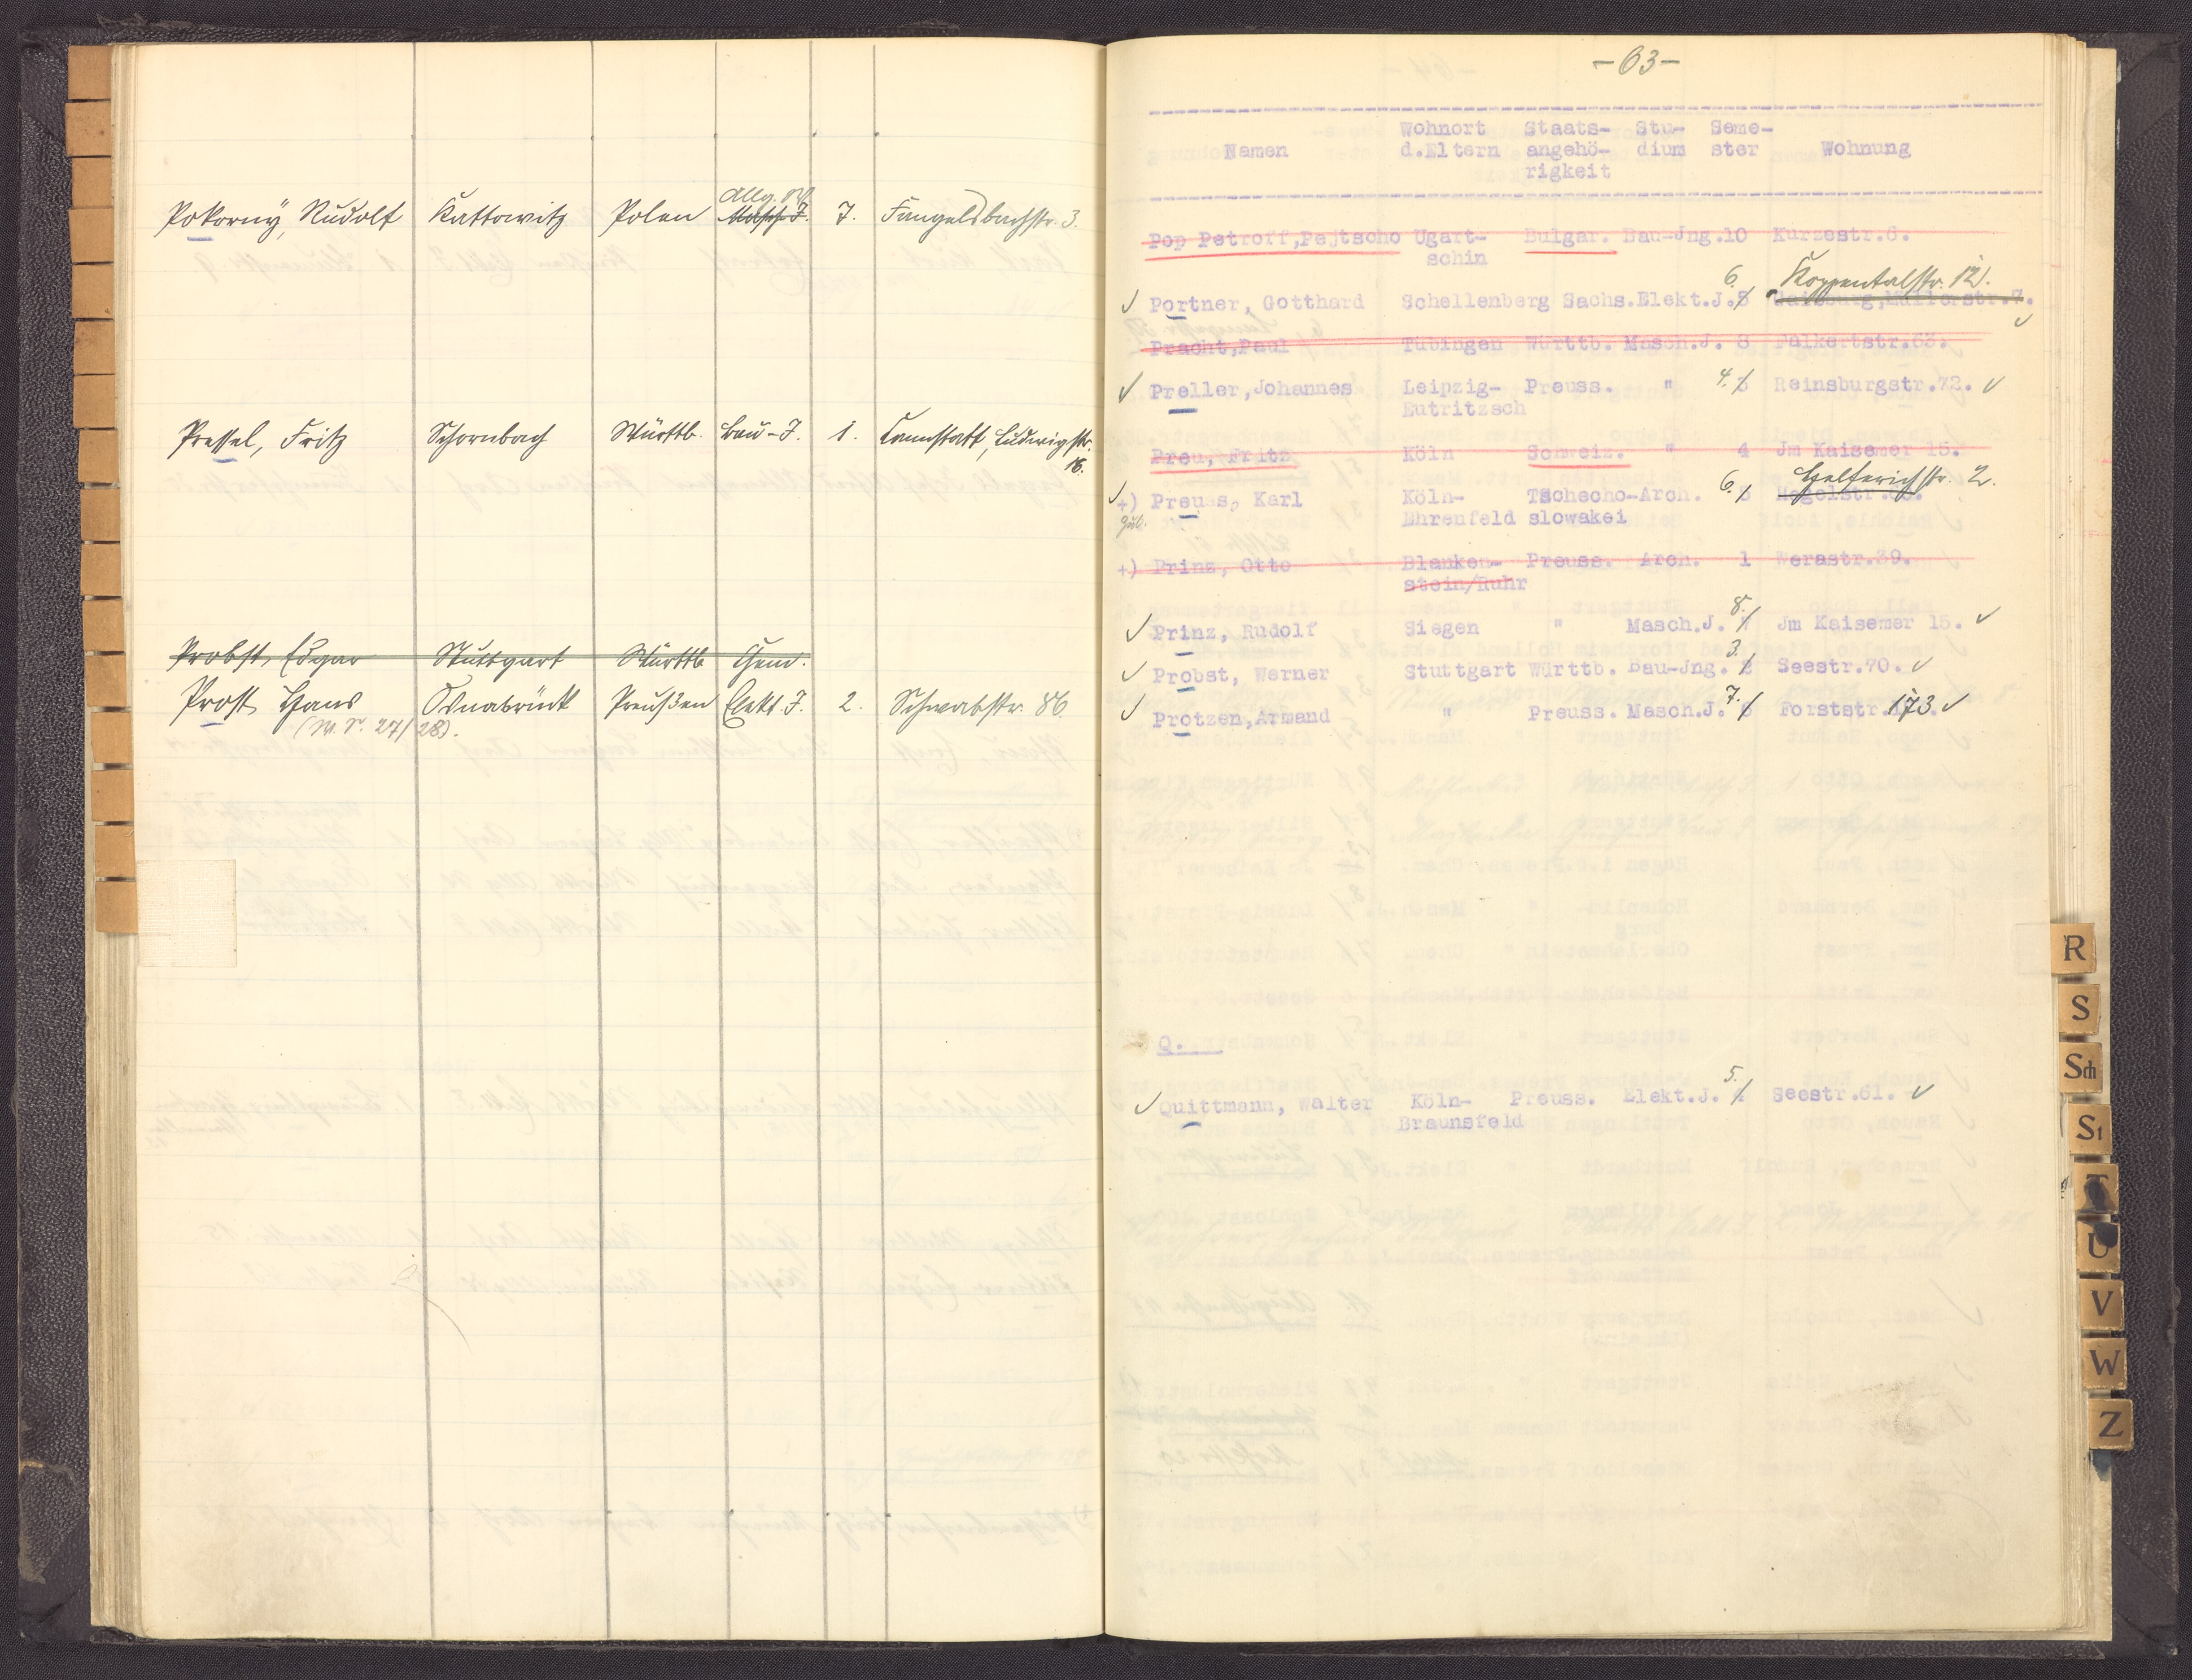 Pokorny, Rudolf Kattowitz Polen Masch. J. 7. Fangelsbachstr. 3.
Pressel, Fritz Schornbach Württb. Bau-J. 1. Cannstatt, Ludwigstr.
16.
Probst, Edgar Stuttgart Württb. Chem.
Prost, Hans Osnabrück Preußen Elekt. J. 2. Schwabstr. 86.
(W. S. 27/28).
-63-
Wohnort Staats- Stu- Seme-
Namen d.Eltern angehö- dium ster Wohnung
rigkeit
Pop Petroff,Pejtscho Ugart- Bulgar. Bau-Jng.10 Kurzestr.6.
schin
6. Koppentalstr. 12.
Portner, Gotthard Schellenberg Sachs.Elekt.J.5
Pracht,Paul Tübingen Württb. Masch.J. 8 Falkertstr.63.
Preller,Johannes Leipzig- Preuss. " 4. 3 Reinsburgstr.72.
Eutritzsch
Preu, Fritz Köln Schweiz. " 4 Jm Kaisemer 15.
6. Helferichstr. 2.
+) Preuss, Karl Köln- Tschecho-Arch. 5
Ehrenfeld slowakei
+) Prinz, Otto Blanken- Preuss. Arch. 1 Werastr.39.
stein/Ruhr
8.
Prinz, Rudolf Siegen " Masch.J. 7 Jm Kaisemer 15.
3.
Probst, Werner Stuttgart Württb. Bau-Jng. 2 Seestr.70.
7.
Protzen,Armand " Preuss. Masch.J. 6 Forststr. 173
Q.
5.
Quittmann, Walter Köln- Preuss. Elekt.J. 4 Seestr.61.
Braunsfeld
R
S
Sch
St
T
U
V
W
Z